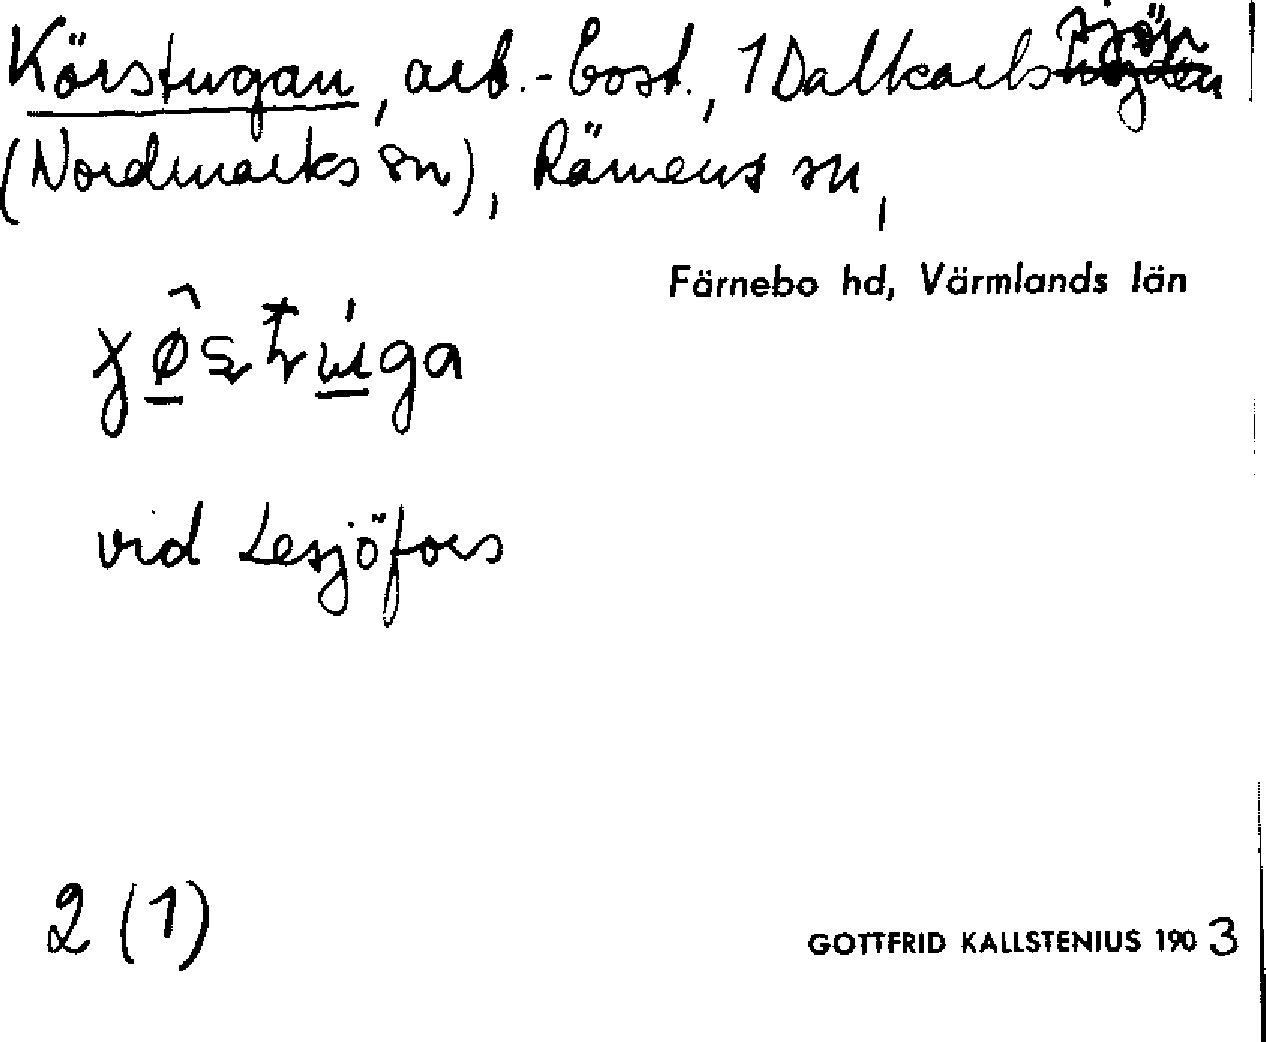 Körstugan, arb.-bost., 1 Dalkarlssjön
(Nordmarks sn), Rämens sn,
Färnebo hd, Värmlands län
vid Lesjöfors
2 (1)
GOTTFRID KALLSTENIUS 1903